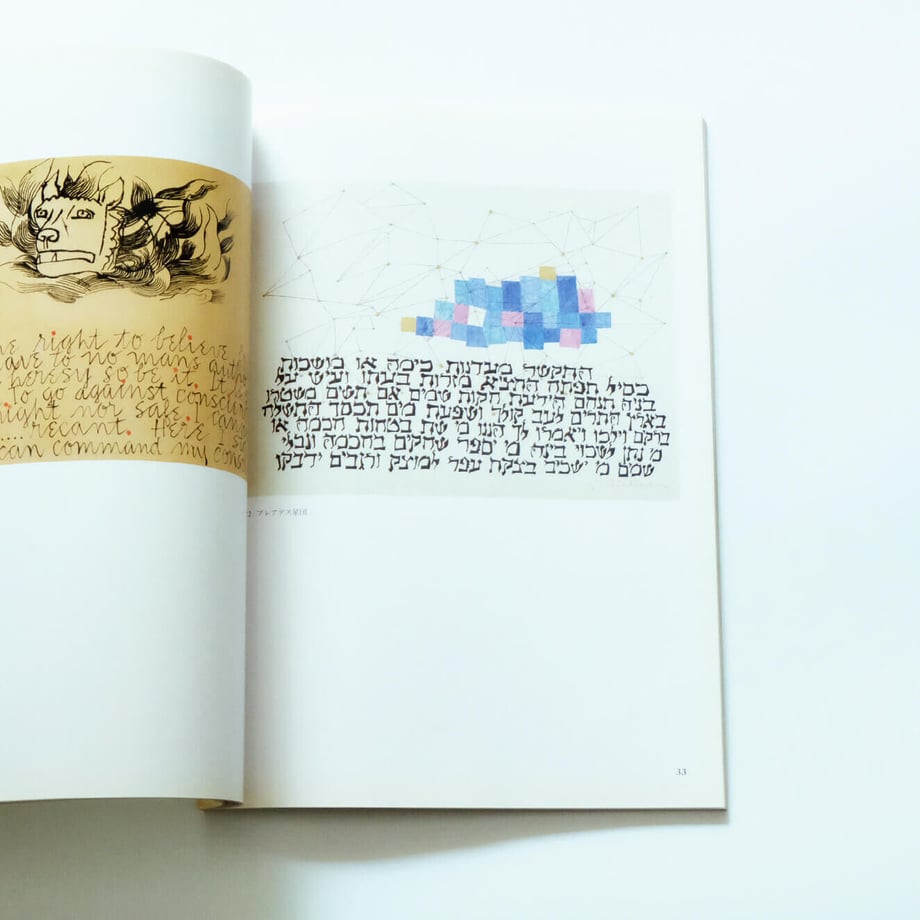 right to believe
to no mans
heresy so be it. It
To go against
right nor safe. I
.... recant. Here
can command my
התקשר מעדנות כימה או מושכות
כסיל תפתח התציא מזרות בעתו ועיש על
בניה תנחם הידעת חקות שמים אם תשים משטרו
בארץ התרים לעב קולך ושפעת מים תכסך התשלח
ברקם וילכו ויאמרו לך הננו מי שת בטחות חכמה או
מי נתן לשכוי בינה מי יספר שחקים בחכמה ונבלי
שמים מי ישכיב בצקת עפר למוצק ורגבים ידבקו
プレアデス星団
33